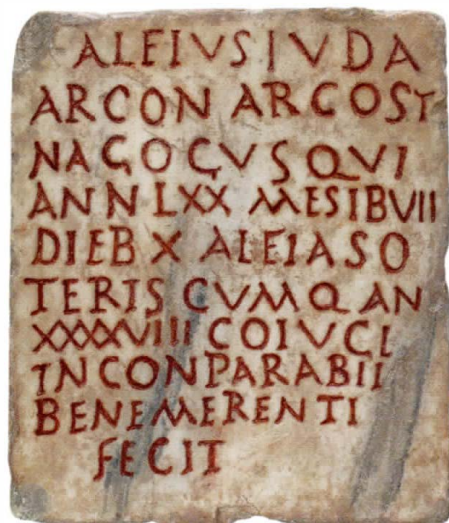 ALFIVS IVDA
ARCON ARCOST
NAGOGVS QVI
ANN LXX MESIB VII
DIEB X ALFIA SO
TERIS CVM Q AN
XXXXVIII COIVCI
INCONPARABILI
BENEMERENTI
FECIT